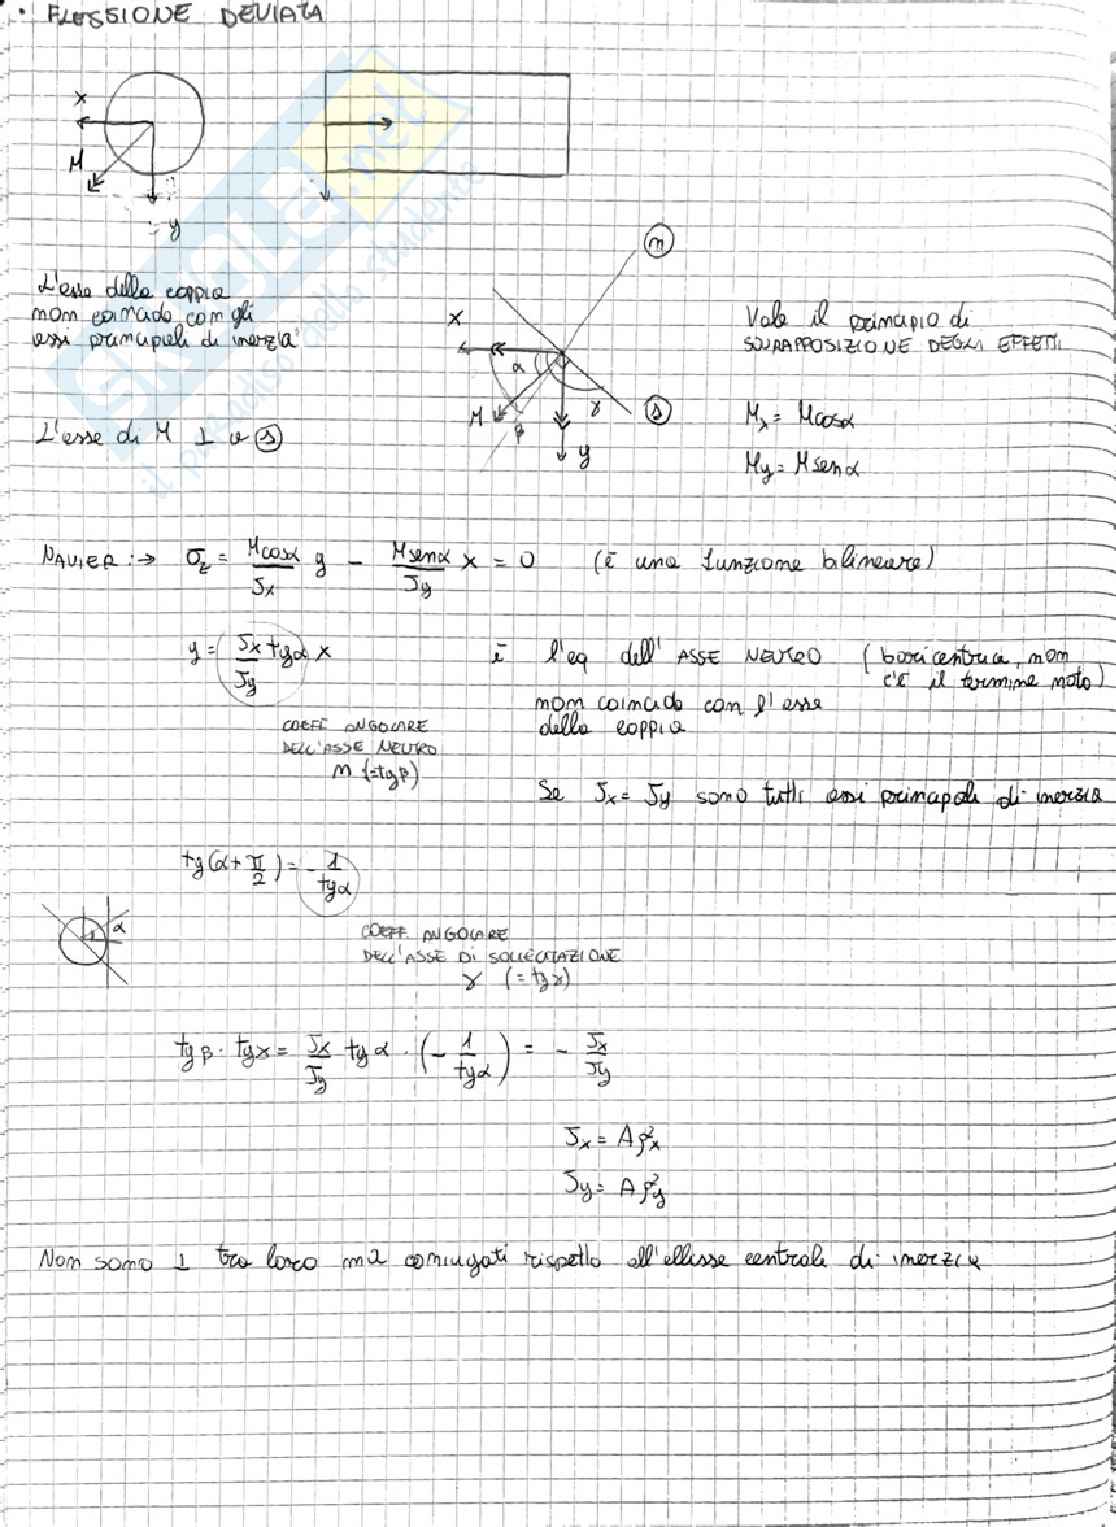 • FLESSIONE DEVIATA
x
M
y
SKUOLA.net
il paradiso dello studente
L'asse della coppia
non coincide con gli
assi principali di inerzia
L'asse di M ⊥ a s
n
x
α
M
β
γ
s
y
Vale il principio di
SOVRAPPOSIZIONE DEGLI EFFETTI
Mx = Mcosα
My = Msenα
NAVIER :→ σz = Mcosα/Jx y - Msenα/Jy x = 0 (è una funzione bilineare)
y = Jx/Jy tgα x è l'eq dell'ASSE NEUTRO (baricentrica, non
c'è il termine noto)
non coincide con l'asse
della coppia
COEFF ANGOLARE
DELL'ASSE NEUTRO
n (=tgβ)
Se Jx = Jy sono tutti assi principali di inerzia
tg(α+π/2) = -1/tgα
α
COEFF. ANGOLARE
DELL'ASSE DI SOLLECITAZIONE
γ (=tgγ)
tgβ · tgγ = Jx/Jy tgα · (-1/tgα) = - Jx/Jy
Jx = Aρ²x
Jy = Aρ²y
Non sono ⊥ tra loro ma coniugati rispetto all'ellisse centrale di inerzia